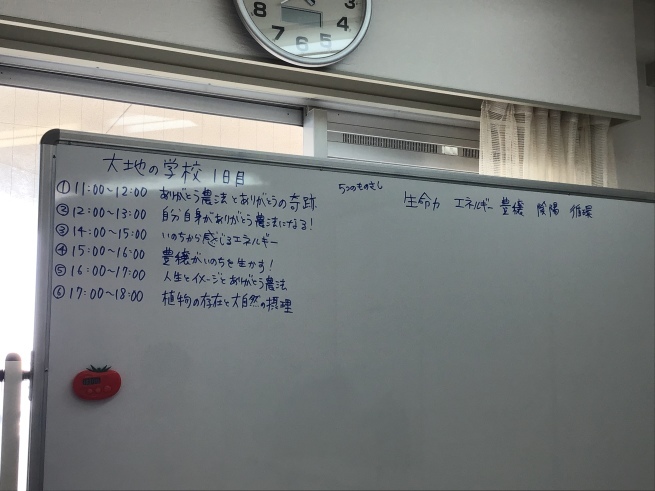 8 7 6 5 4 3
大地の学校 1日目
① 11:00〜12:00 ありがとう農法とありがとうの奇跡
② 12:00〜13:00 自分自身がありがとう農法になる!
③ 14:00〜15:00 いのちから感じるエネルギー
④ 15:00〜16:00 豊穣がいのちを生かす!
⑤ 16:00〜17:00 人生とイメージとありがとう農法
⑥ 17:00〜18:00 植物の存在と大自然の摂理
5つのものさし
生命力 エネルギー 豊穣 陰陽 循環